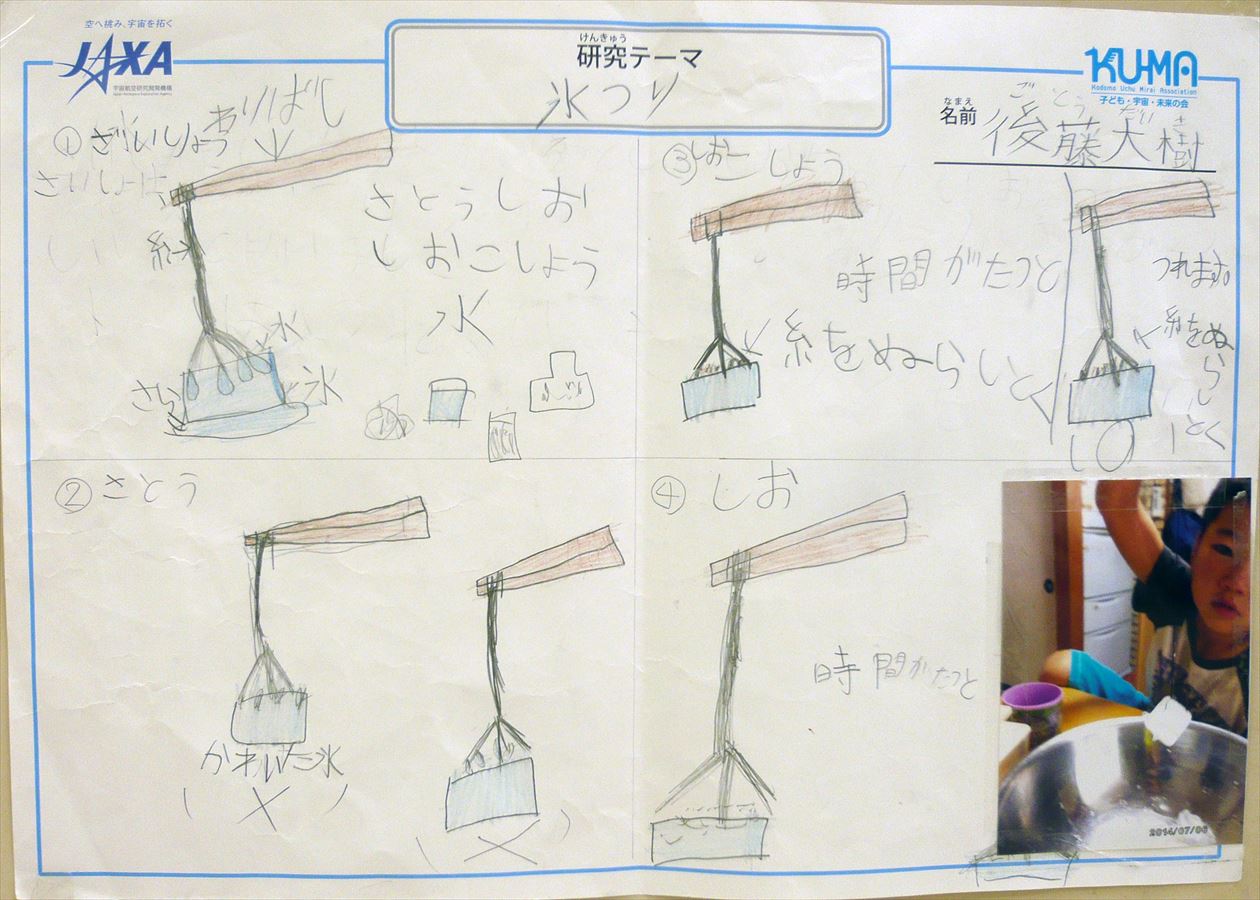 空へ挑み、宇宙を拓く
JAXA
宇宙航空研究開発機構
Japan Aerospace Exploration Agency
けんきゅう
研究テーマ
氷つり
KU-MA
Kodomo Uchu Mirai Association
子ども・宇宙・未来の会
なまえ
名前
ごとうだいき
後藤大樹
①
わりばし
さいしょは
糸→
水
氷
さら
さとうしお
しおこしょう
水
②さとう
かわいた氷
(×)
(×)
③しおこしょう
時間がたつと
糸をぬらいとく
つれます。
糸をぬ
らし
とく
④しお
時間がたつと
2014/07/06